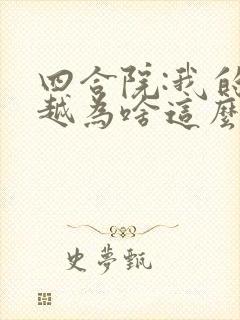 四合院:我的
越為啥這麼
史夢甄